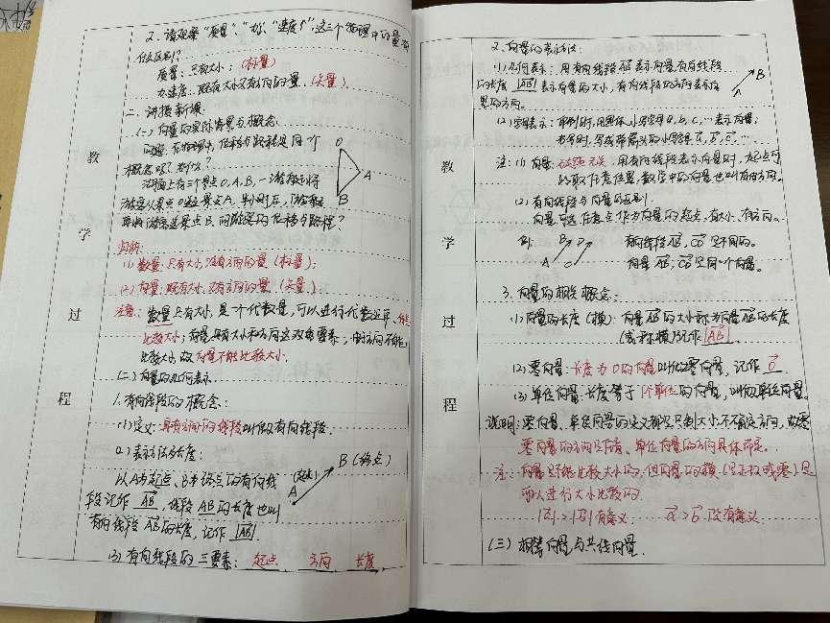 教学过程
2. 请观察"质量"、"力"、"速度",这三个物理中的量有
什么区别?
质量:只有大小;(标量)
力、速度:既有大小又有方向的量.(矢量).
二、讲授新课
(一) 向量的实际背景与概念
概念吗?为什么?
O
A
B
归纳:
(1) 数量:只有大小,没有方向的量(标量);
(2) 向量:既有大小,又有方向的量(矢量).
注意:数量只有大小,是一个代数量,可以进行代数运算、能
比较大小;向量具有大小和方向这双重要素,由于方向不能
比较大小,故向量不能比较大小.
(二) 向量的几何表示
1. 有向线段的概念:
(1)定义:具有方向的线段叫做有向线段.
(2) 表示方法及长度:
以A为起点、B为终点的有向线
段记作 AB,线段AB的长度也叫
有向线段AB的长度,记作|AB|.
A (起点)
B (终点)
(3) 有向线段的三要素:起点 方向 长度.
教学过程
2. 向量的表示方法:
(1) 几何表示:用有向线段AB表示向量,有向线段
的长度|AB|表示向量的大小,有向线段的方向表示向
量的方向.
A
B
(2)字母表示:印刷时,用黑体小写字母a,b,c,…表示向量;
书写时,写成带箭头的小写字母a,b,c,…
用有向线段表示向量时,起点可
以取任意位置,数学中的向量也叫自由向量.
(2) 有向线段与向量的区别:
向量可选任意点作为向量的起点,有大小、有方向.
例:
A B C D
有向线段AB,CD是不同的.
向量AB,CD是同一个向量.
3. 向量的相关概念:
(1)向量的长度(模):向量AB的大小称为向量AB的长度
(或称模)记作|AB|
(2)零向量:长度为0的向量叫做零向量,记作0.
(3)单位向量:长度等于1个单位的向量,叫做单位向量.
说明:零向量、单位向量的定义都是只限大小,不确定方向,故零
零向量的方向是任意、单位向量的方向具体而定.
注:向量是不能比较大小的,但向量的模(是正数或零)是
可以进行大小比较的.
|a|>|b|有意义 a>b没有意义
(三) 相等向量与共线向量.